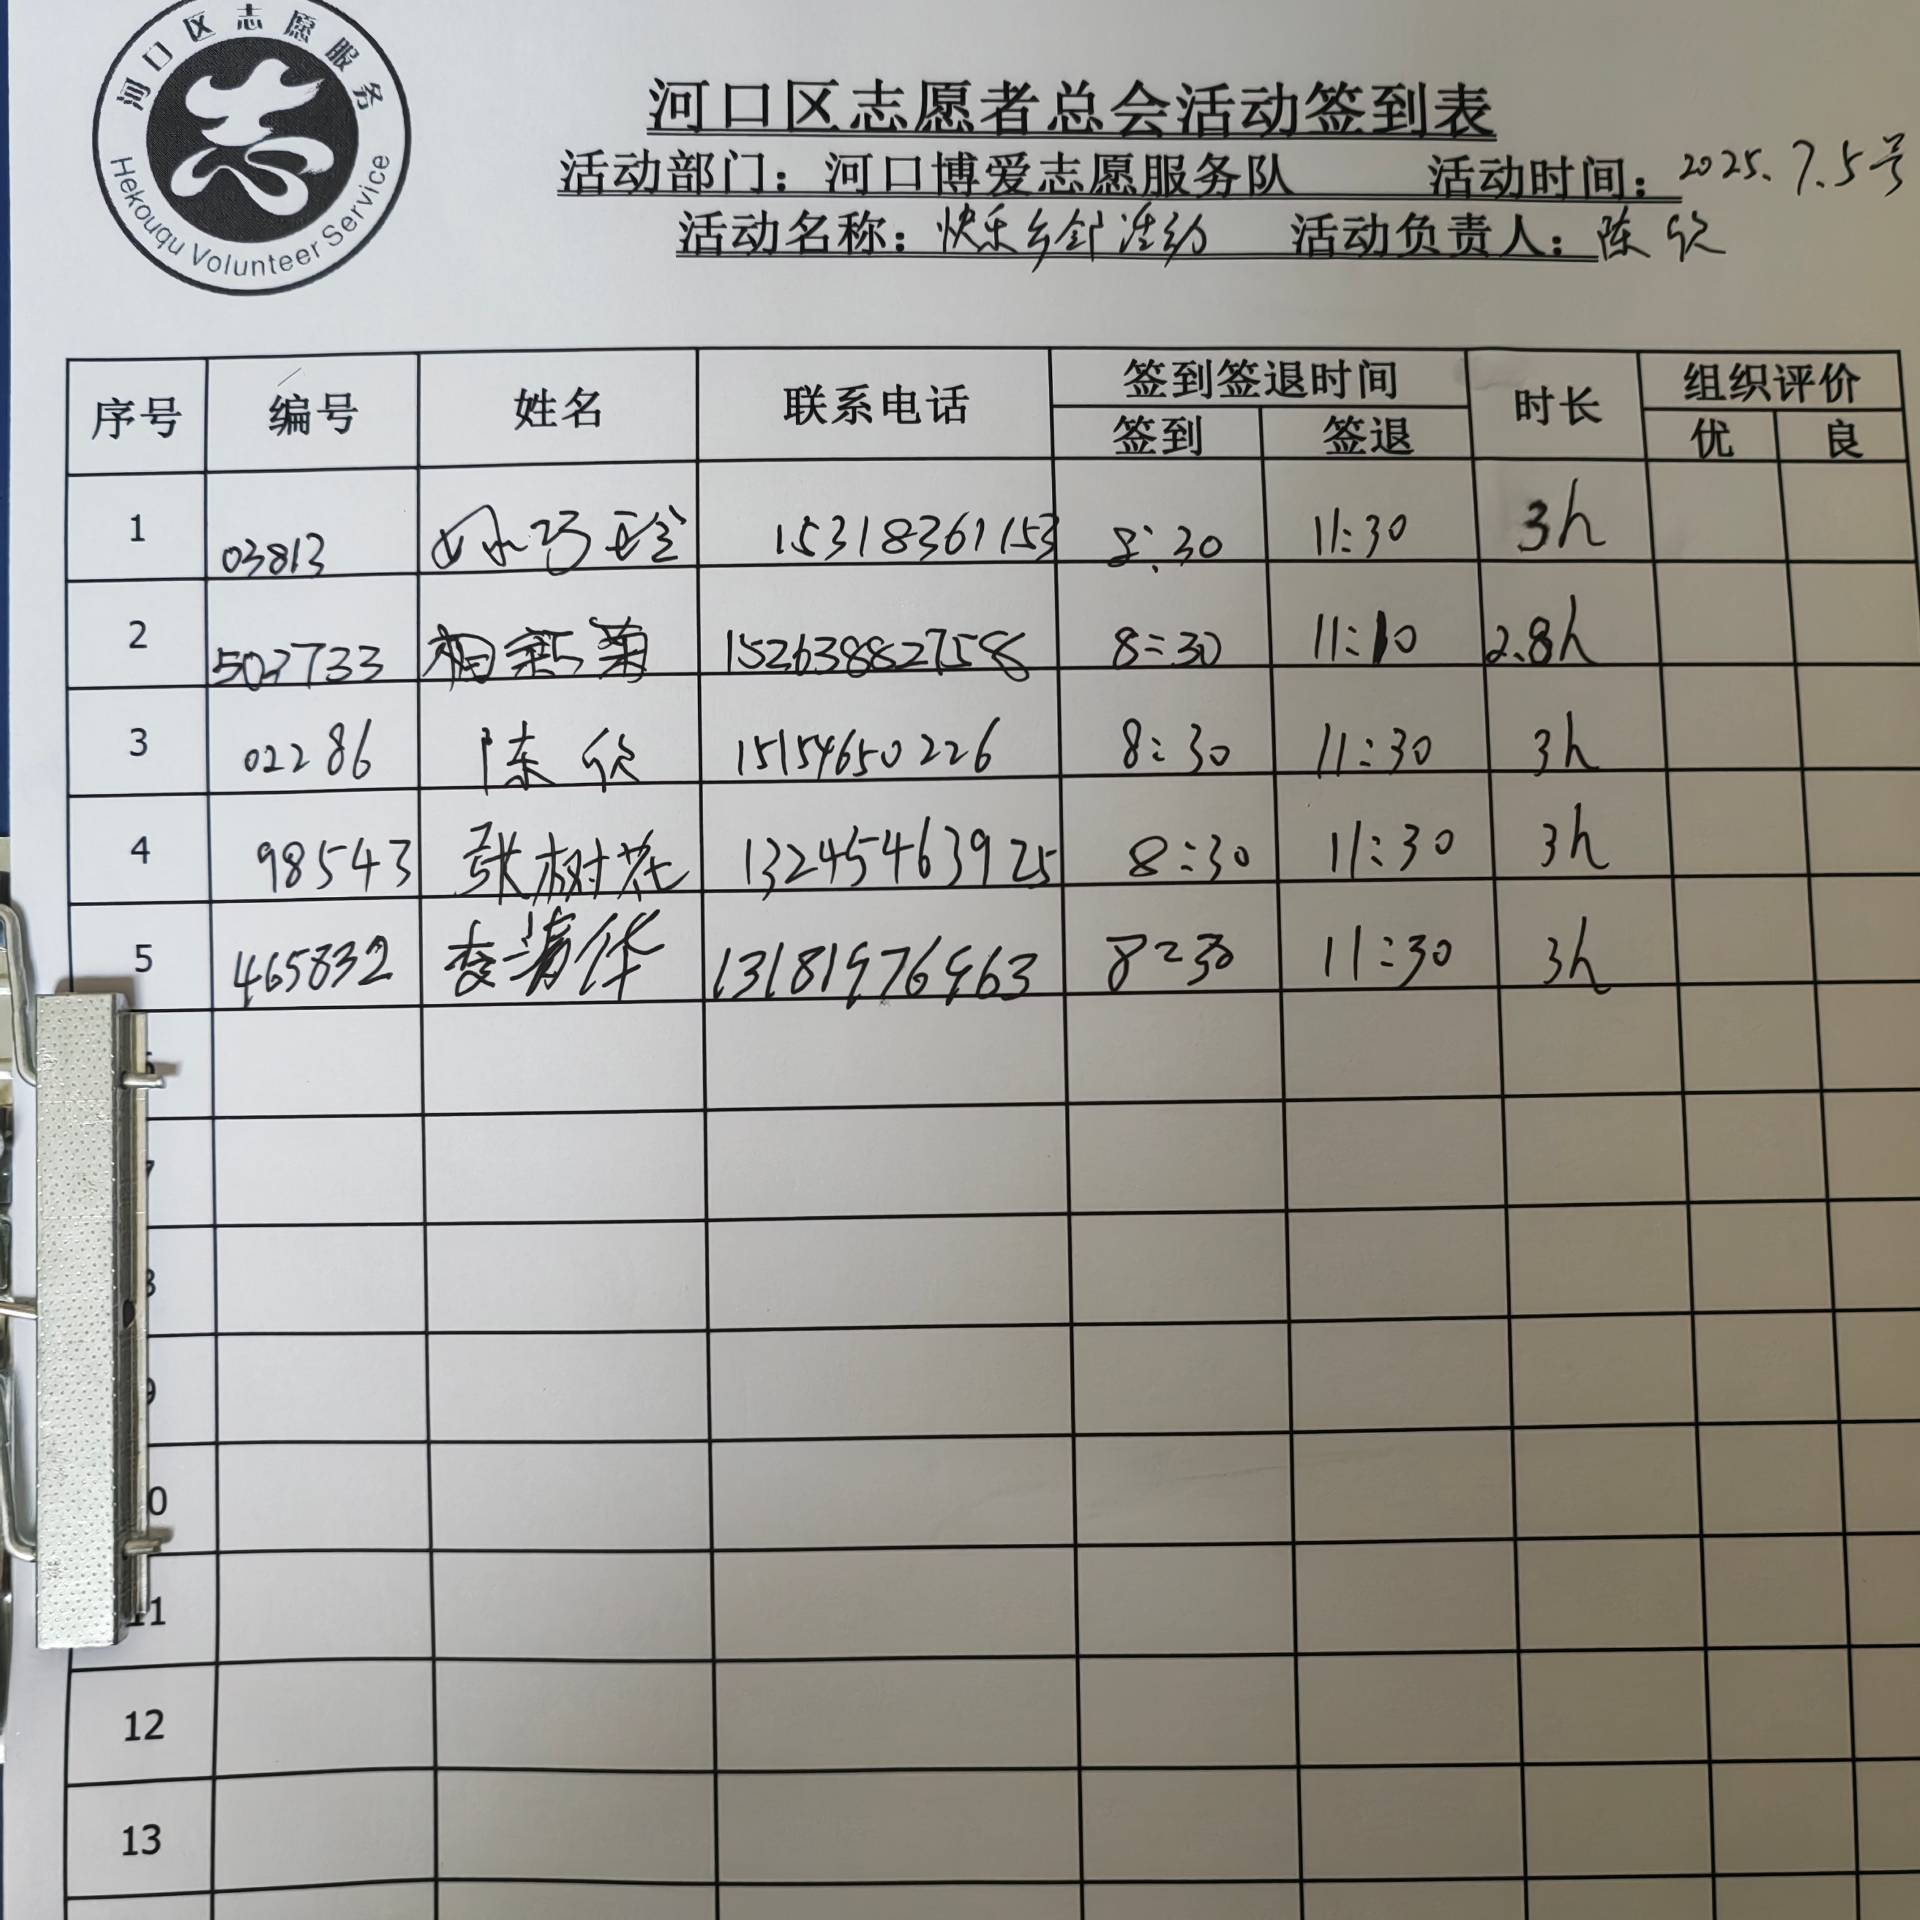 河口区志愿服务
Hekouqu Volunteer Service
河口区志愿者总会活动签到表
活动部门：河口博爱志愿服务队 活动时间：2025.7.5号
活动名称：快乐乡邻活动 活动负责人：陈欣
序号 编号 姓名 联系电话 签到签退时间 时长 组织评价
签到 签退 优 良
1 03813 巧珍 15318361153 8:30 11:30 3h
2 507733 相新菊 15263882758 8:30 11:10 2.8h
3 02286 陈欣 15154650226 8:30 11:30 3h
4 98543 张树花 13245463925 8:30 11:30 3h
5 465832 李清华 13181976963 8:30 11:30 3h
12
13